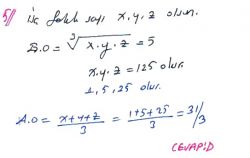 5// Üç farklı sayı x, y, z olsun.
G.O = ∛x.y.z = 5
x.y.z = 125 olur.
1, 5, 25 olur.
A.O = x+y+z/3 = 1+5+25/3 = 31/3
CEVAP:D